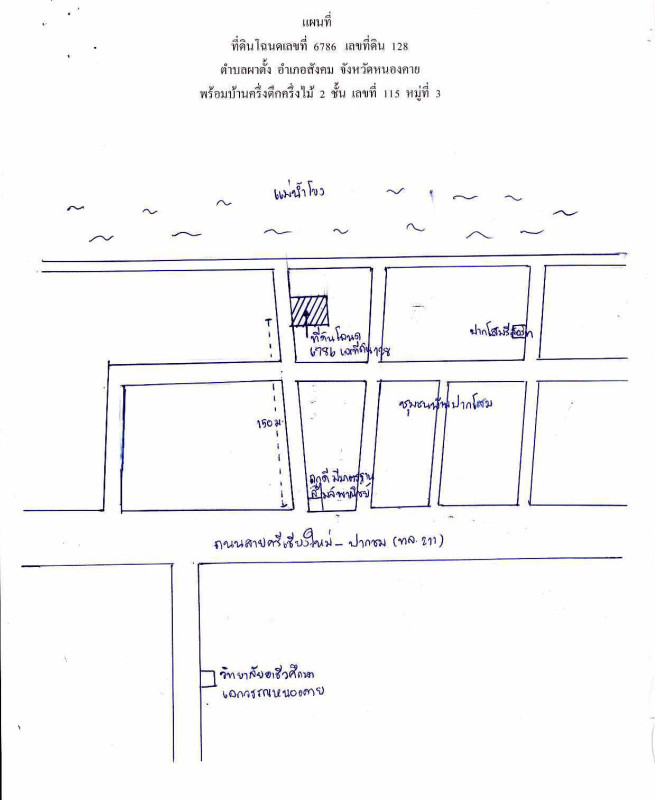 แผนที่
ที่ดินโฉนดเลขที่ 6786 เลขที่ดิน 128
ตำบลผาตั้ง อำเภอสังคม จังหวัดหนองคาย
พร้อมบ้านครึ่งตึกครึ่งไม้ 2 ชั้น เลขที่ 115 หมู่ที่ 3
แม่น้ำโขง
ที่ดินโฉนด
6786 เลขที่ดิน 128
ปากโสมรีสอร์ท
ชุมชนบ้านปากโสม
150 ม.
ถูกดี มีมาตรฐาน
พาณิชย์
ถนนสายศรีเชียงใหม่ - ปากชม (ทล. 211)
วิทยาลัยอาชีวศึกษา
เอกวรรณหนองคาย